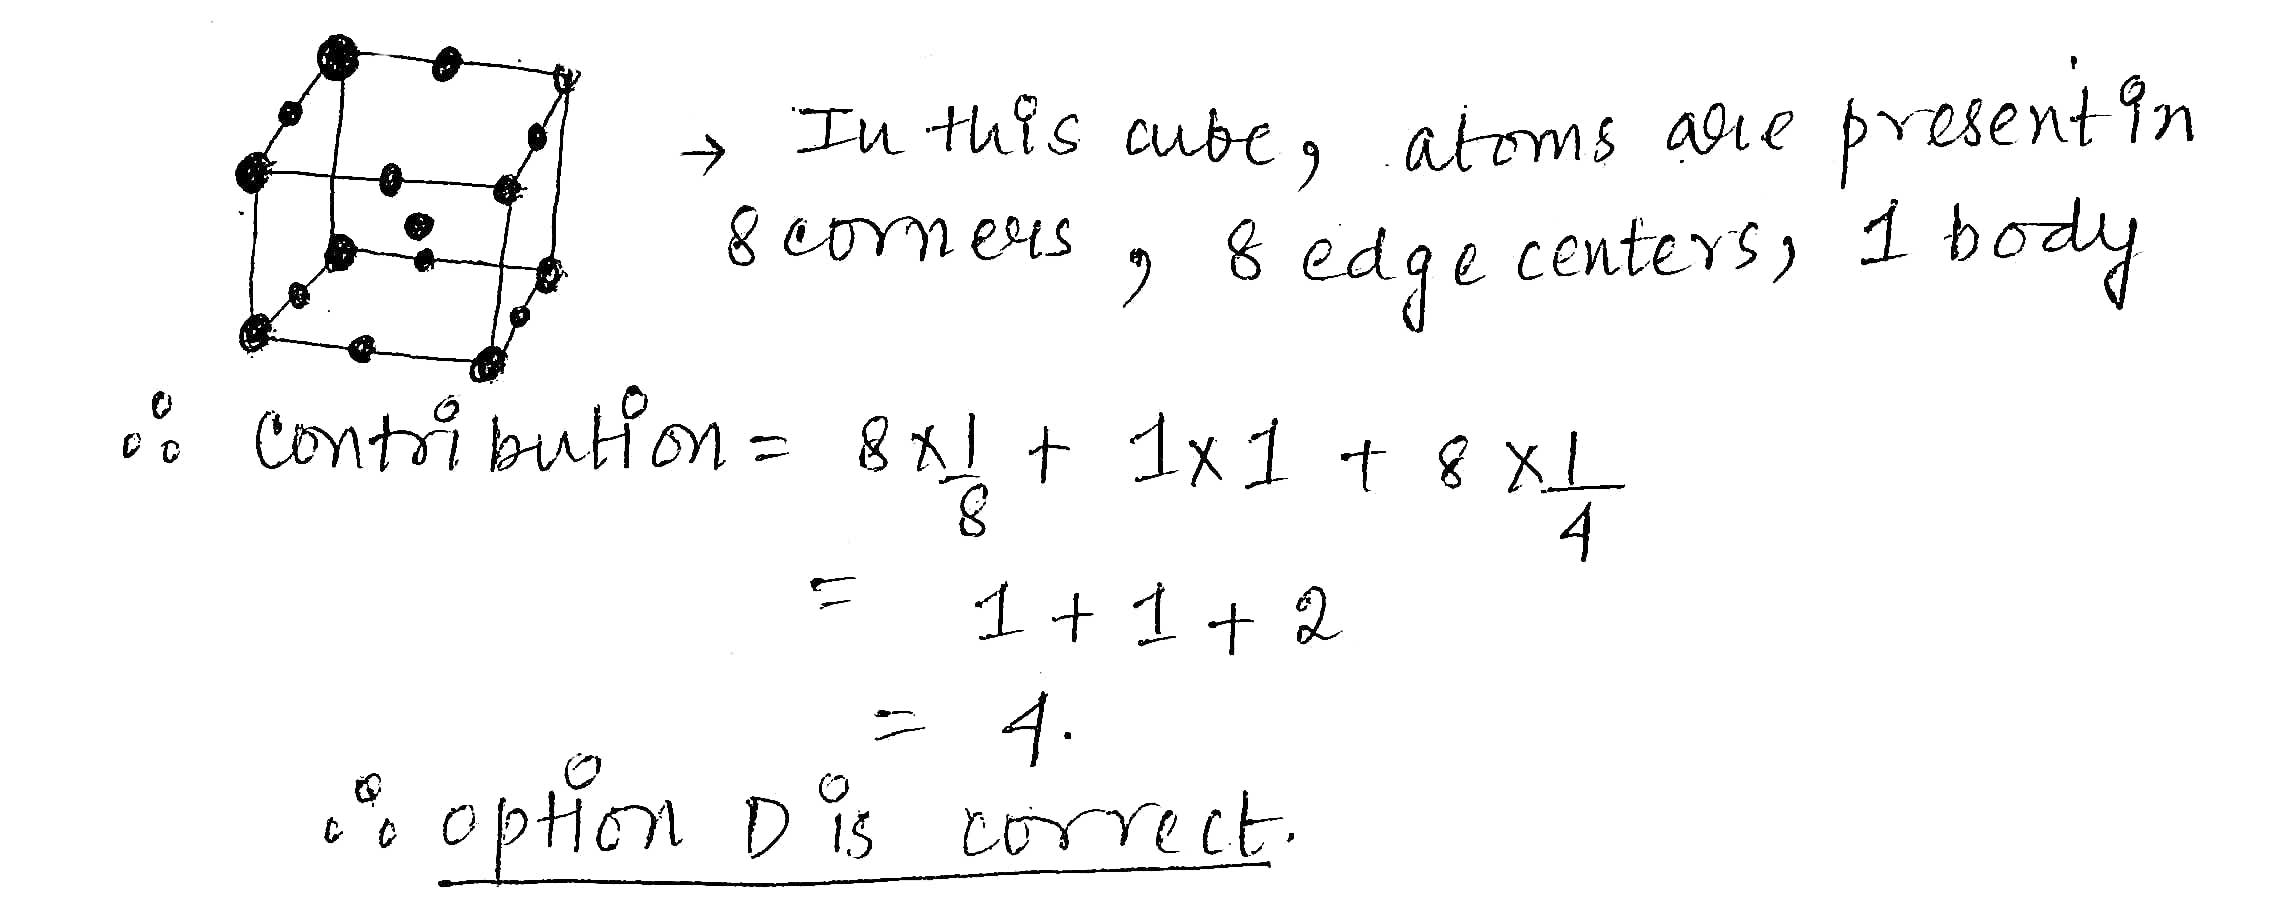 → In this cube, atoms are present in
8 corners, 8 edge centers, 1 body
∴ Contribution = 8 × 1/8 + 1 × 1 + 8 × 1/4
= 1 + 1 + 2
= 4.
∴ option D is correct.